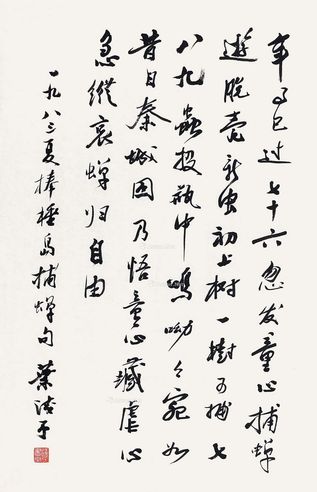 年事已过七十六忽发童心捕蝉
遊脱壳新虫初上树一樹可捕七
八九蟲投瓶中鳴呦々宛如
昔日秦城囚乃悟童心藏虐心
急縱哀蝉归自由
一九八三夏棒槌島捕蝉句 葉浅予